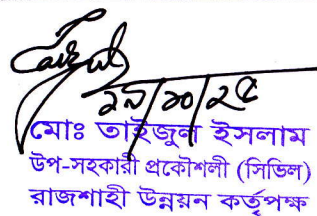 ২৯/১০/২৫
মোঃ তাইজুল ইসলাম
উপ-সহকারী প্রকৌশলী (সিভিল)
রাজশাহী উন্নয়ন কর্তৃপক্ষ